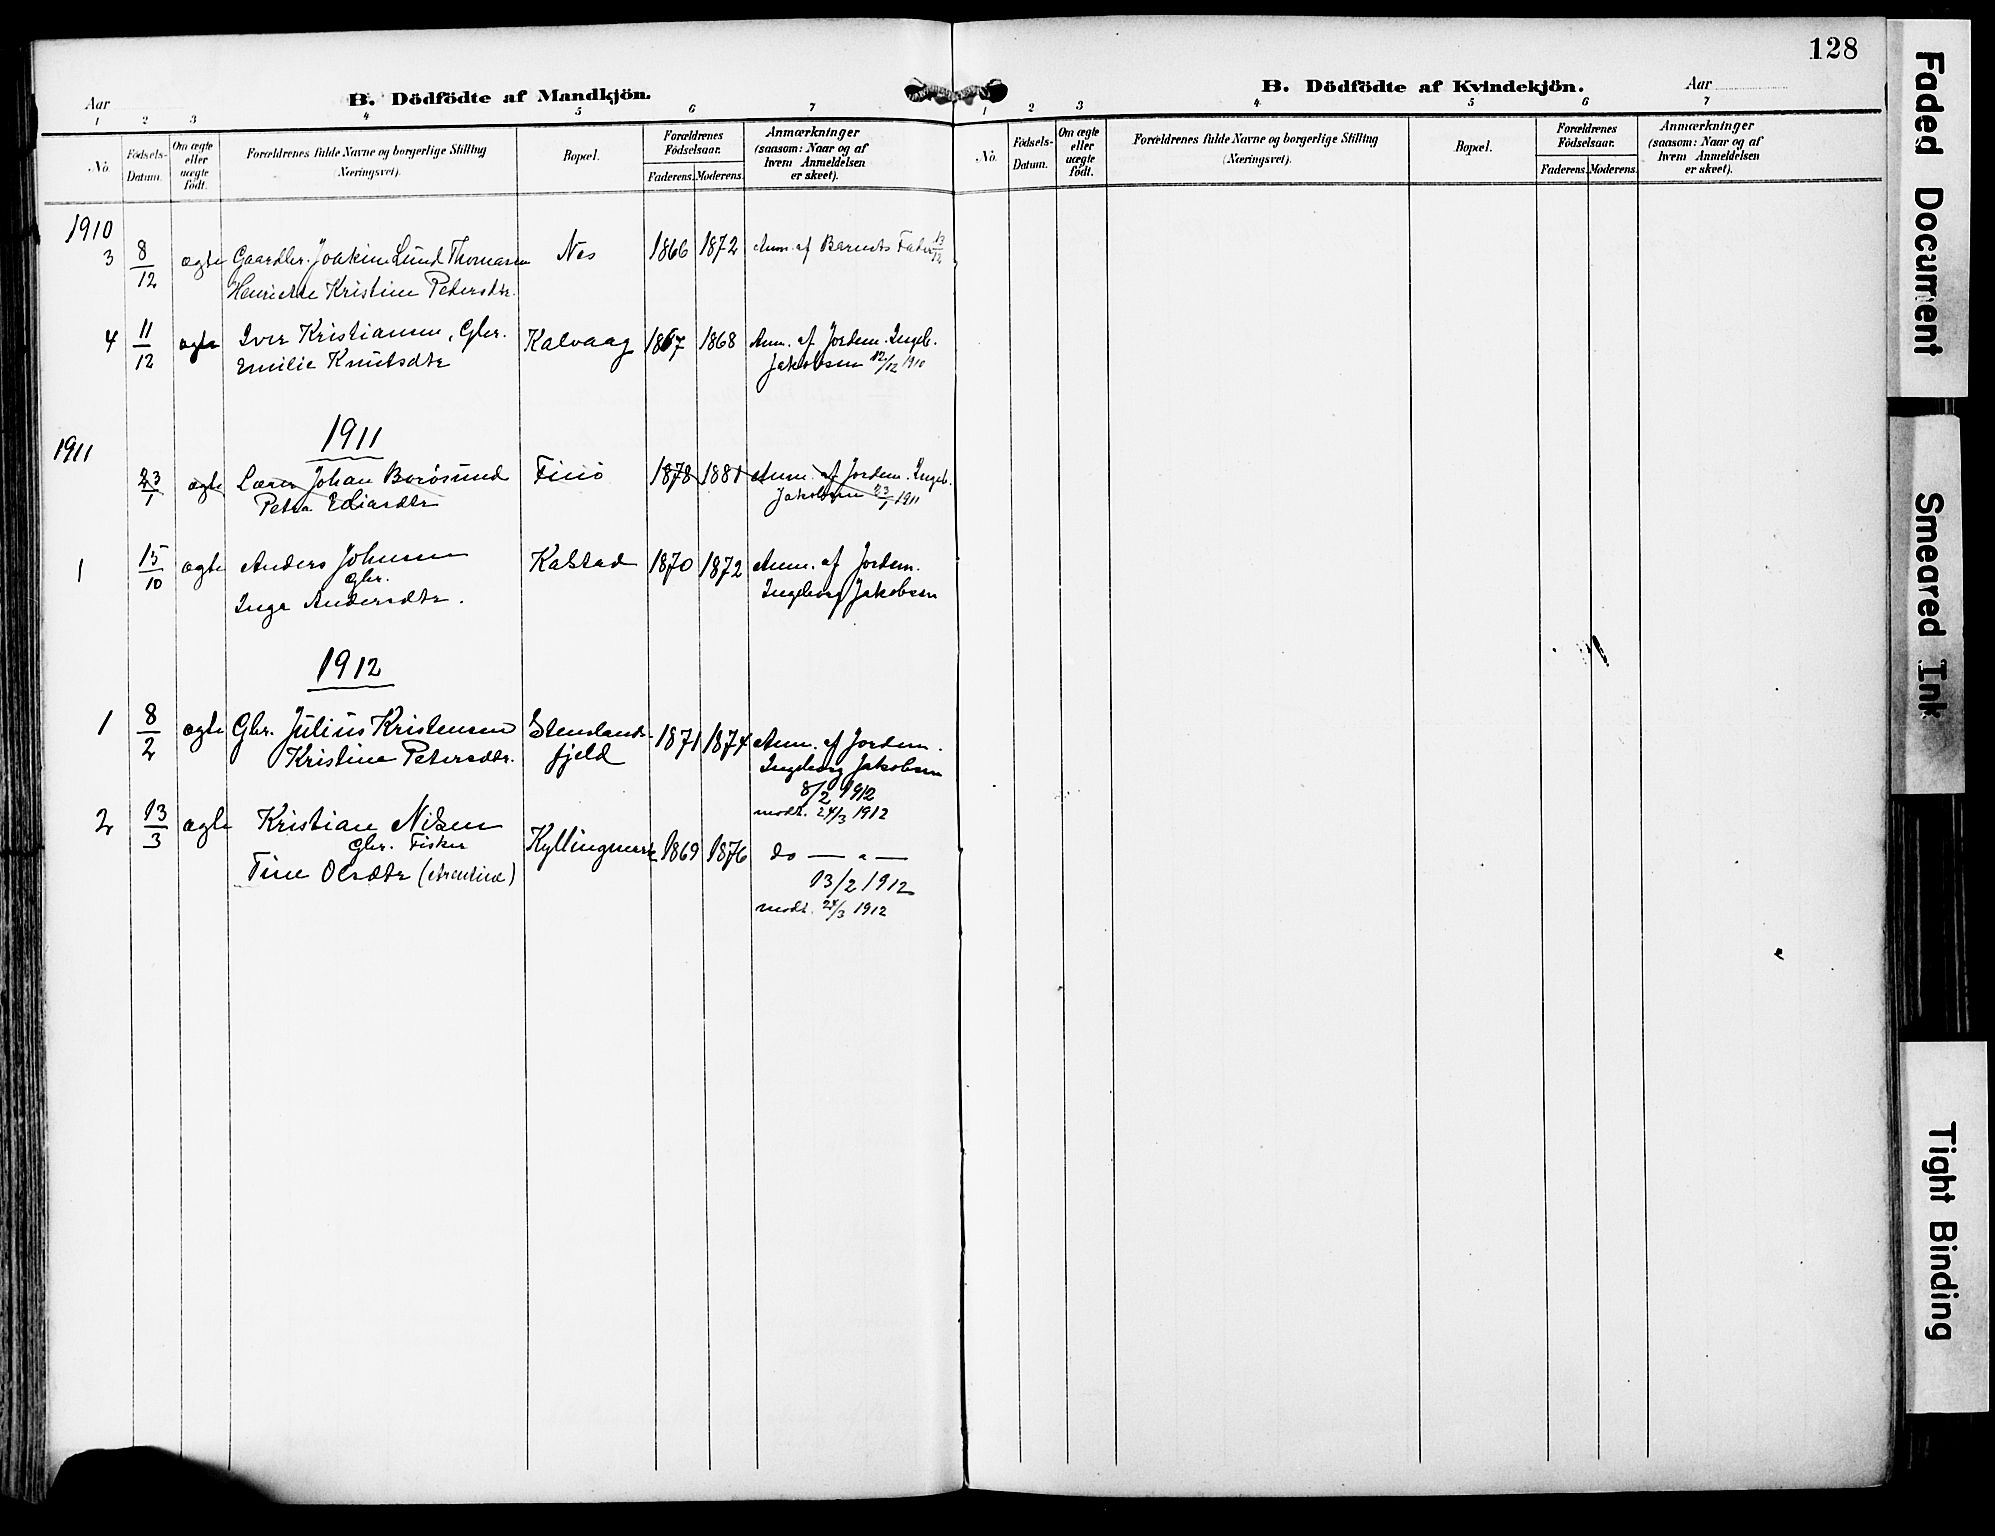 128
Aar
B. Dödfödte af Mandkjön.
1 2 3 4 5 6 7
No.
Födsels-Datum.
Om ægte eller uægte födt.
Forældrenes fulde Navne og borgerlige Stilling
(Næringsvei).
Bopæl.
Forældrenes Födselsaar.
Faderens. Moderens.
Anmærkninger
(saasom: Naar og af
hvem Anmeldelsen
er skeet).
1910
3 8/12 ægte Gaardbr. Joakim Lund Thomasen Nes 1866 1872 Anm. af Barnets Fader 13/12
Henriette Kristine Petersdtr.
4 11/12 ægte Iver Kristiansen, Gbr. Kalvaag 1867 1868 Anm. af Jordem. Ingeb.
Emilie Knutsdtr Jakobsen 12/12 1910
1911
1911
23/1 ægte Lærer Johan Borösund Finö 1878 1881 Anm. af Jordem. Ingeb.
Petra Ediasdtr Jakobsen 23/1 1911
1 15/10 ægte Anders Johnsen Kalstad 1870 1872 Anm. af Jordem.
Gbr.
Inga Andersdtr. Ingeborg Jakobsen
1912
1 8/2 ægte Gbr. Julius Kristensen Stenslands- 1871 1874 Anm. af Jordem.
Kristine Petersdtr. fjeld Ingeborg Jakobsen
8/2 1912
modt. 24/3 1912
2 13/3 ægte Kristian Nilsen Kyllingmark 1869 1876 do — " —
Gbr. Fisker
Tine Olsdtr 13/2 1912
modt. 24/3 1912
B. Dödfödte af Kvindekjön.
Aar
1 2 3 4 5 6 7
No.
Födsels-Datum.
Om ægte eller uægte födt.
Forældrenes fulde Navne og borgerlige Stilling
(Næringsvei).
Bopæl.
Forældrenes Födselsaar.
Faderens. Moderens.
Anmærkninger
(saasom: Naar og af
hvem Anmeldelsen
er skeet).
Faded Document
Smeared Ink
Tight Binding